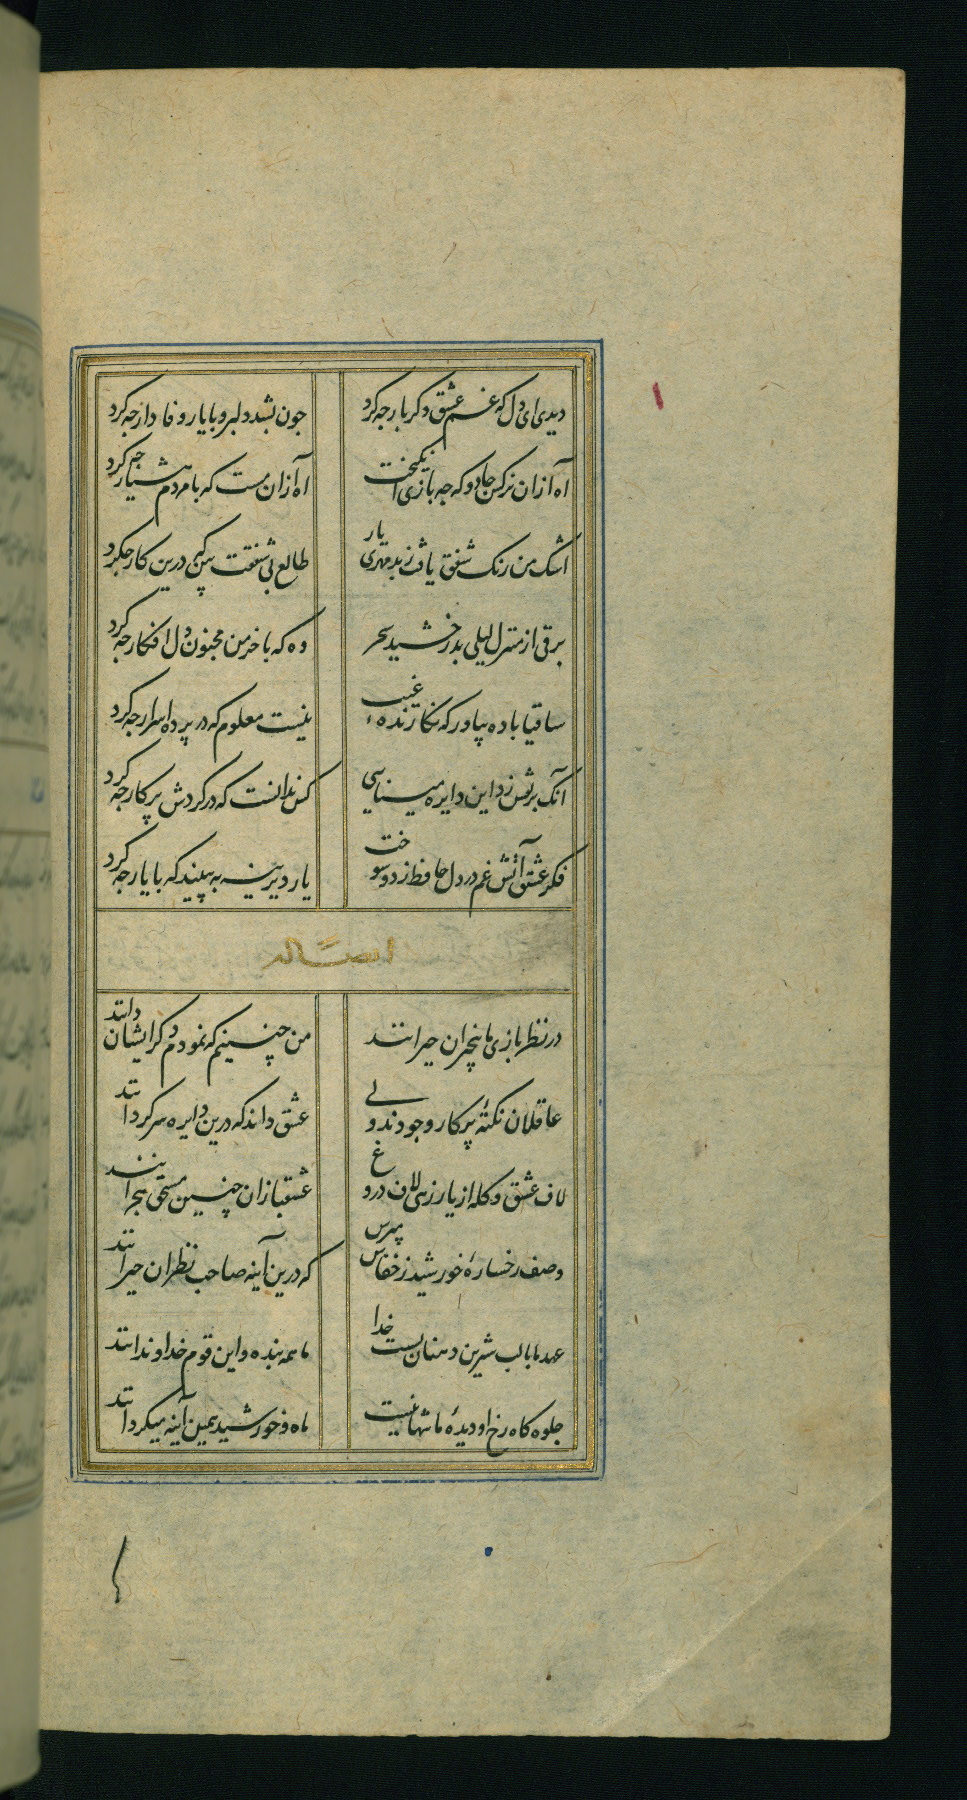 دیدی ای دل که غم عشق دکر بار جه کرد
جون بشد دلبر و با یار وفادار جه کرد
اه ازان نرکس جادو که جه بازی انکیخت
اه ازان مست که با مردم هشیار جه کرد
اشک من رنک شفق یافت ز بد مهری یار
طالع بی شفقت بین که درین کار جکرد
برقی از منزل لیلی بدرخشید سحر
وه که با خرمن مجنون دل افکار جه کرد
ساقیا باده بیاور که نکارنده غیب
نیست معلوم که در پرده اسرار جه کرد
آنک بر نقش زد این دایره مینایی
کس ندانست که در کردش پرکار جه کرد
فکر عشق آتش غم در دل حافظ زد و سوخت
یار دیرینه ببینید که با یار جه کرد
در نظربازی ما بیخبران حیرانند
من جنینم که نمودم دکر ایشان دانند
عاقلان نکتهٔ پرکار وجودند ولی
عشق داند که درین دایره سرکردانند
لاف عشق و کله از یار زهی لاف دروغ
عشقبازان جنین مستحق هجرانند
وصف رخسارهٔ خورشید ز خفاش مپرس
که درین آینه صاحب نظران حیرانند
عهد ما با لب شیرین دهنان بست خدا
ما همه بنده و این قوم خداوندانند
جلوه کاه رخ او دیدهٔ ما تنها نیست
ماه و خورشید همین آینه میکردانند